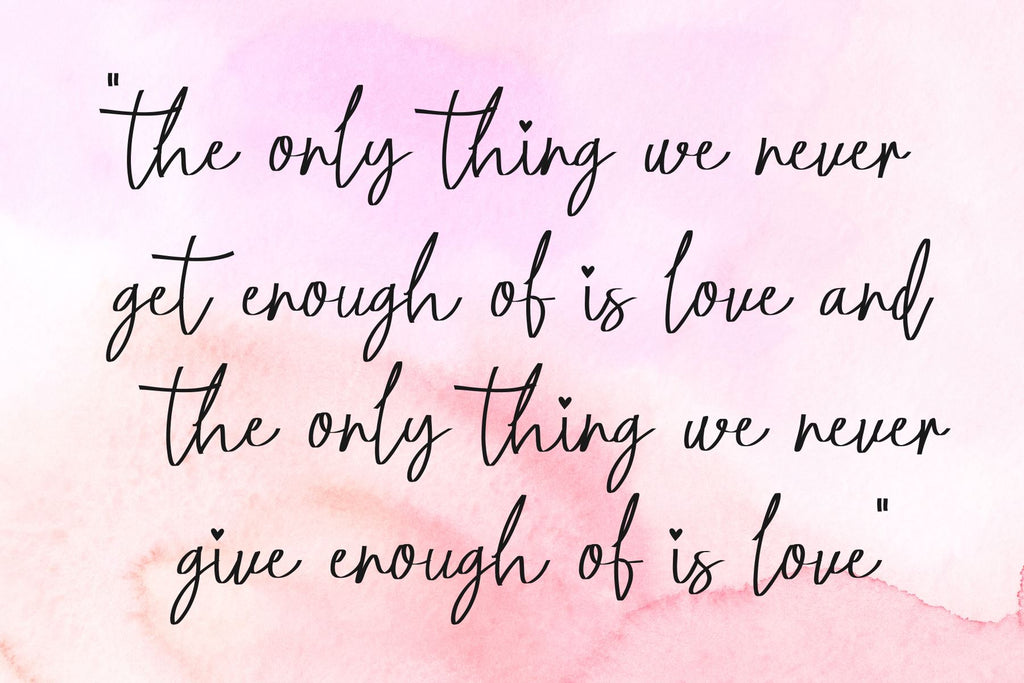 "the only thing we never
get enough of is love and
the only thing we never
give enough of is love"